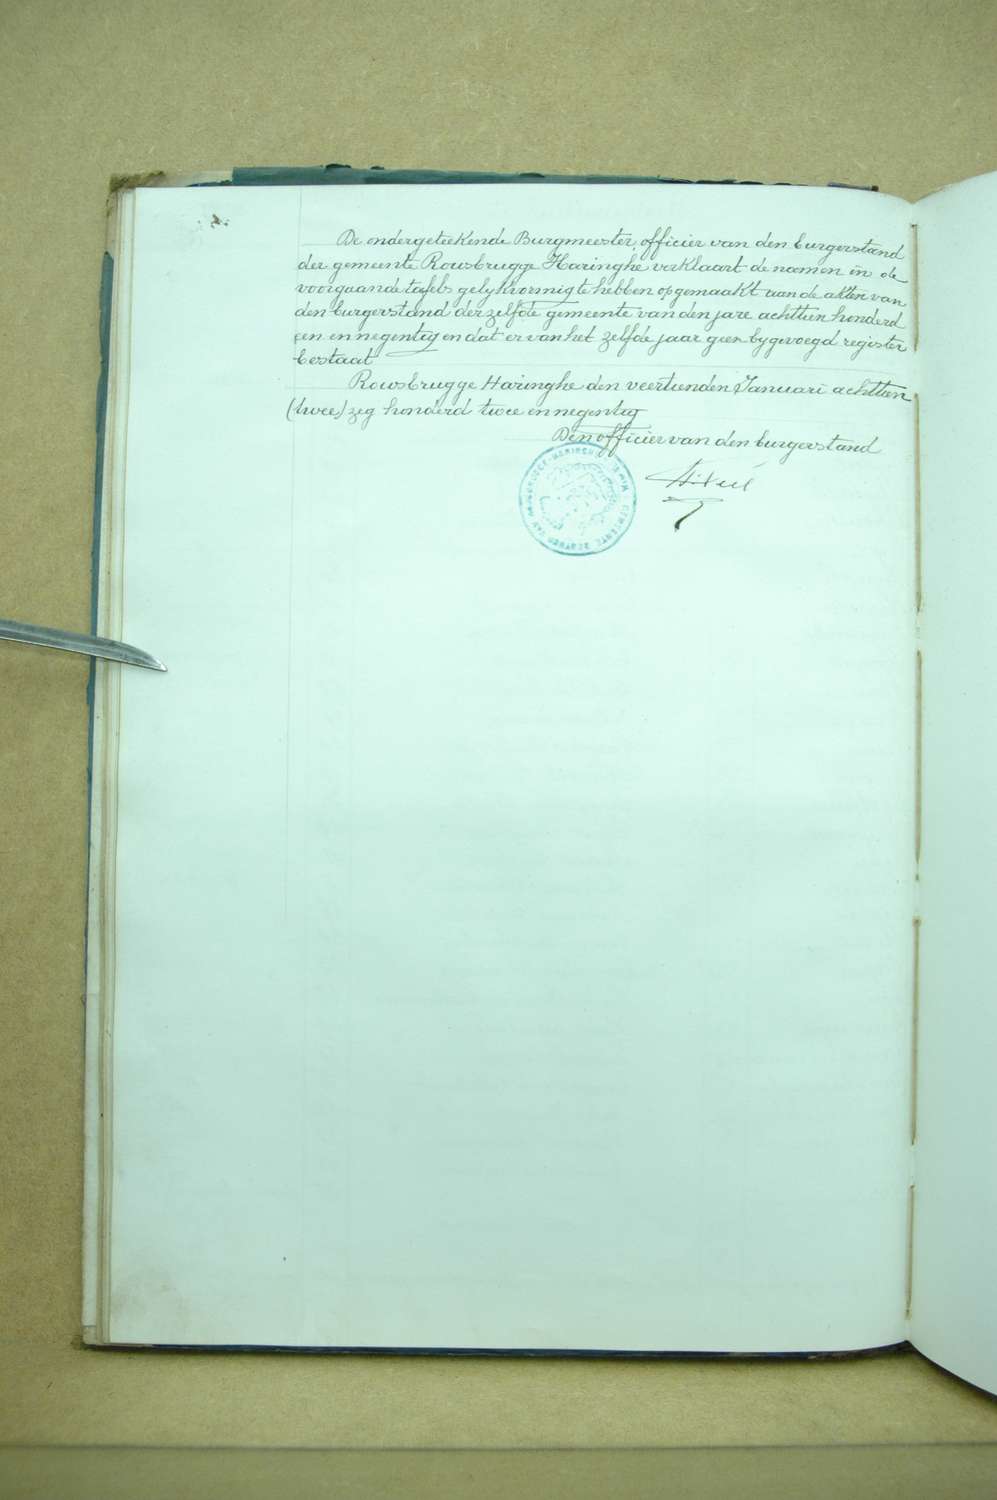 De ondergeteekende Burgmeester, officier van den burgerstand
der gemeente Rousbrugge Haringhe verklaart de namen in de
voorgaande tafels gelykvormig te hebben opgemaakt aan de akten van
den burgerstand der zelfde gemeente van den jare achttien honderd
een en negentig en dat er van het zelfde jaar geen bygevoegd register
bestaat
Rousbrugge Haringhe den veertienden Januari achttien
(twee) zeg honderd twee en negentig
Den officier van den burgerstand